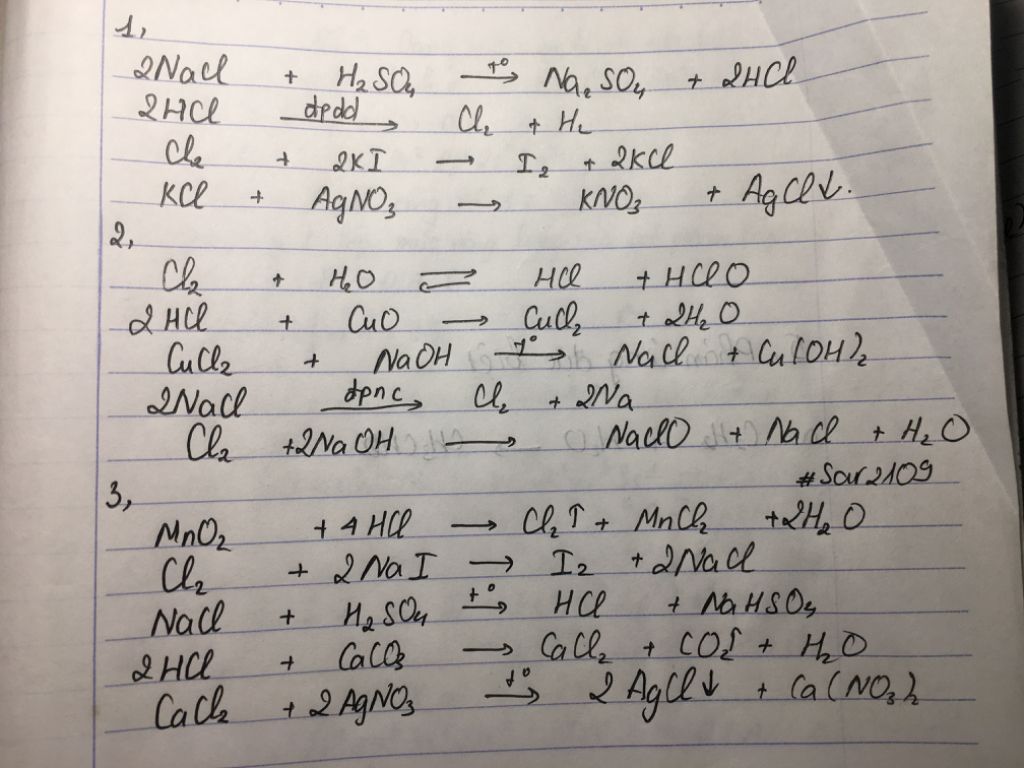 1,
2NaCl + H₂SO₄ —t°→ Na₂SO₄ + 2HCl
2HCl —đpdd→ Cl₂ + H₂
Cl₂ + 2KI → I₂ + 2KCl
KCl + AgNO₃ → KNO₃ + AgCl↓.
2,
Cl₂ + H₂O ⇌ HCl + HClO
2HCl + CuO → CuCl₂ + 2H₂O
CuCl₂ + NaOH —t°→ NaCl + Cu(OH)₂
2NaCl —đpnc→ Cl₂ + 2Na
Cl₂ +2NaOH → NaClO + NaCl + H₂O
#Sar2109
3,
MnO₂ + 4HCl → Cl₂↑ + MnCl₂ +2H₂O
Cl₂ + 2NaI → I₂ + 2NaCl
NaCl + H₂SO₄ —t°→ HCl + NaHSO₄
2HCl + CaCO₃ → CaCl₂ + CO₂↑ + H₂O
CaCl₂ + 2AgNO₃ —t°→ 2AgCl↓ + Ca(NO₃)₂